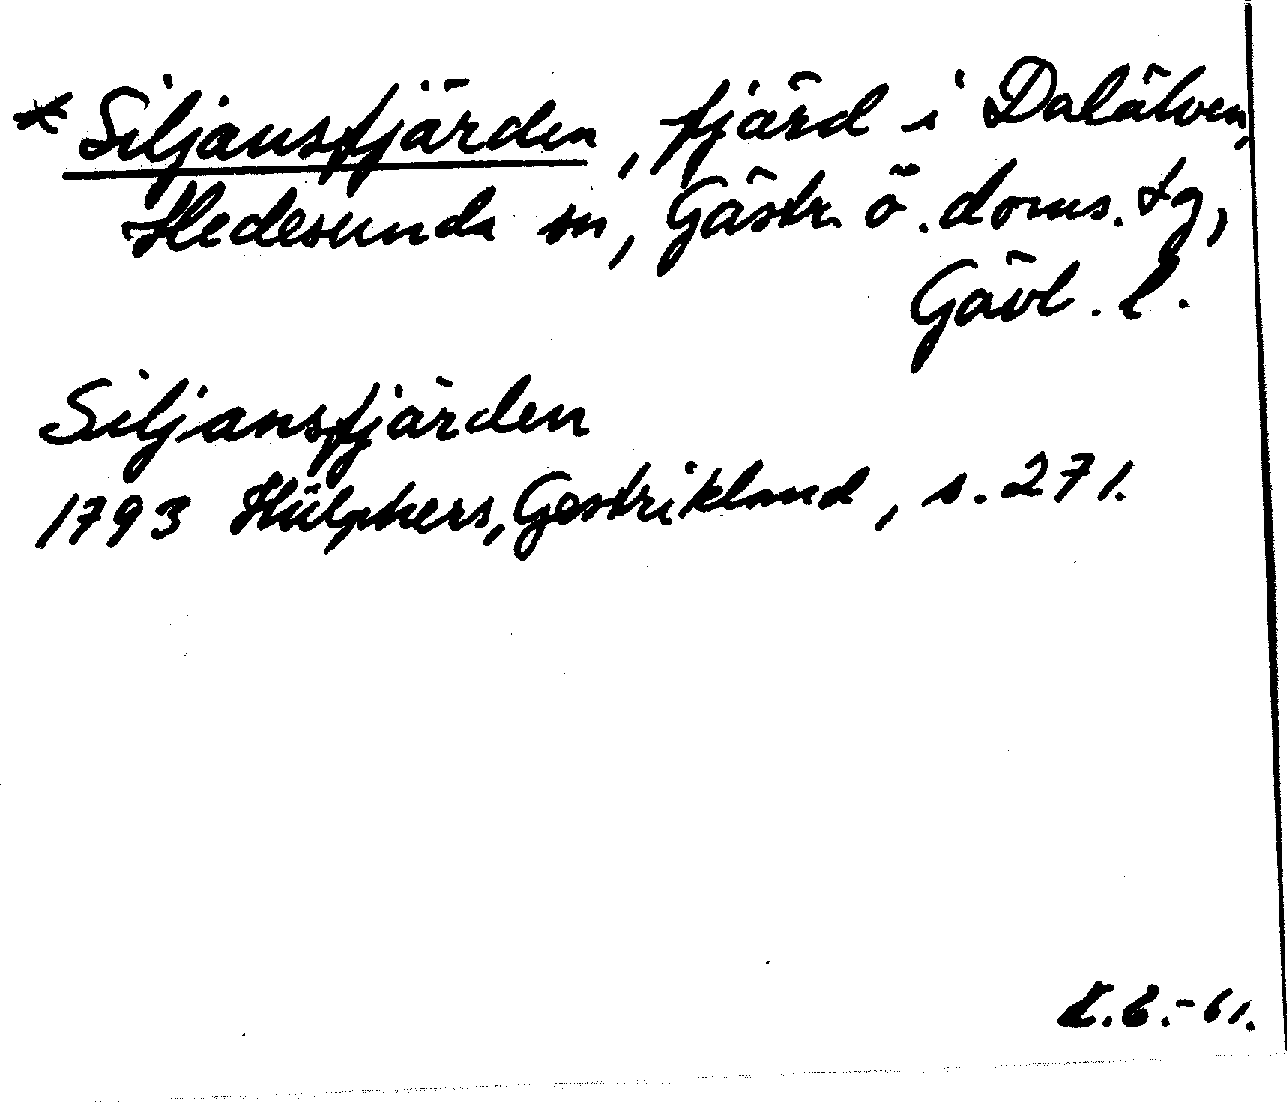 * Siljansfjärden, fjärd i Dalälven,
Hedesunda sn, Gästr. ö. doms. tg,
Gävl. l.
Siljansfjärden
1793 Hülphers, Gestrikland, s. 271.
-61.